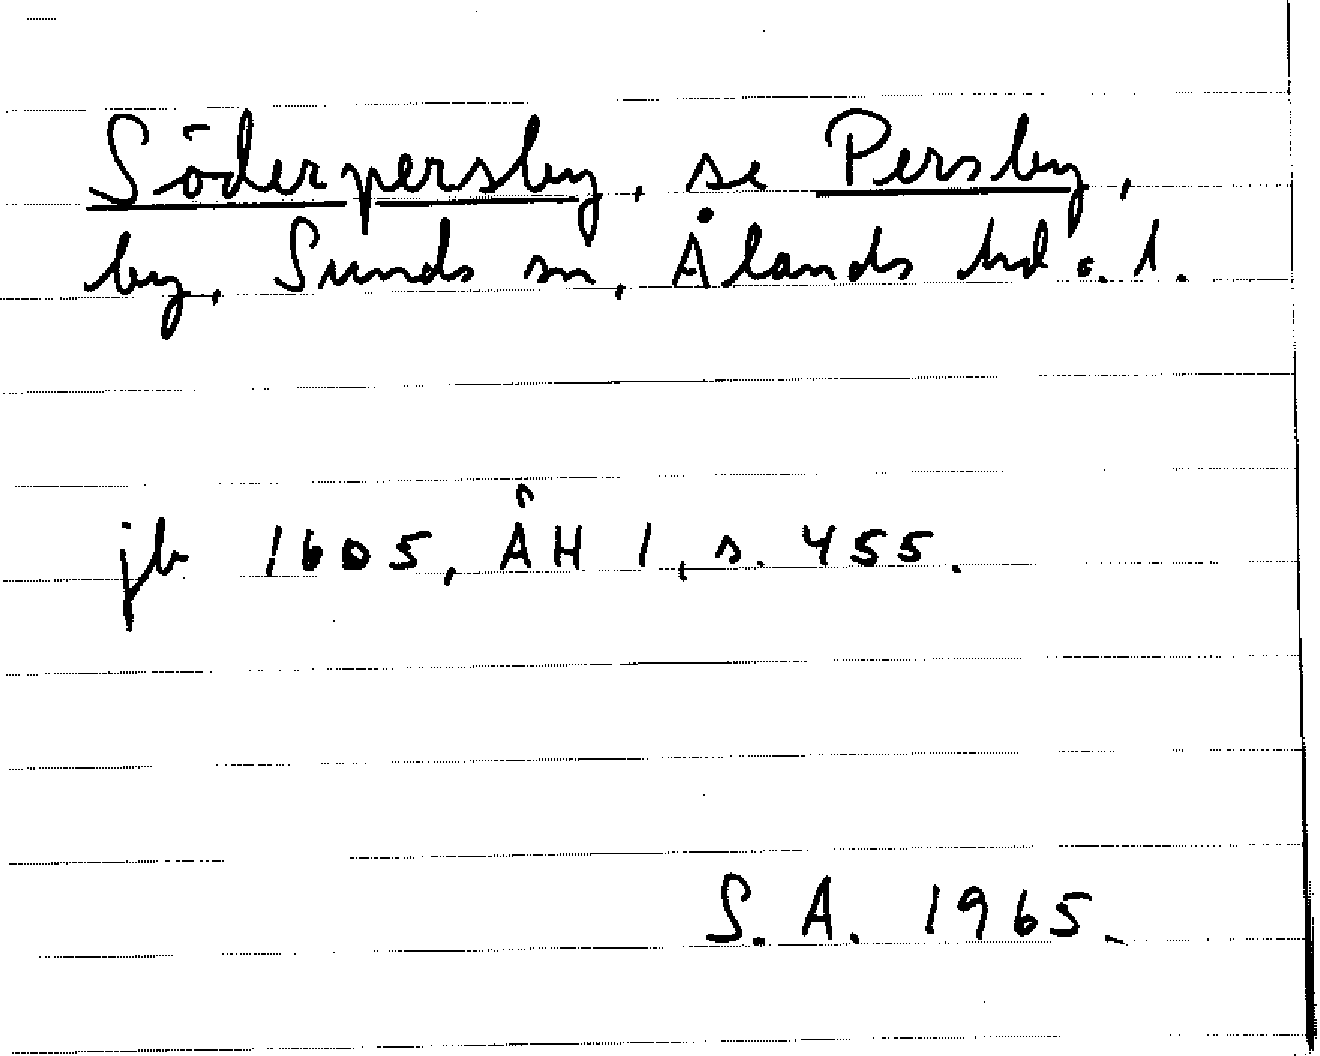 Söderpersby, se Persby,
by, Sunds sn, Ålands hd o. l.
jb 1605, ÅH 1, s. 455.
S. A. 1965.